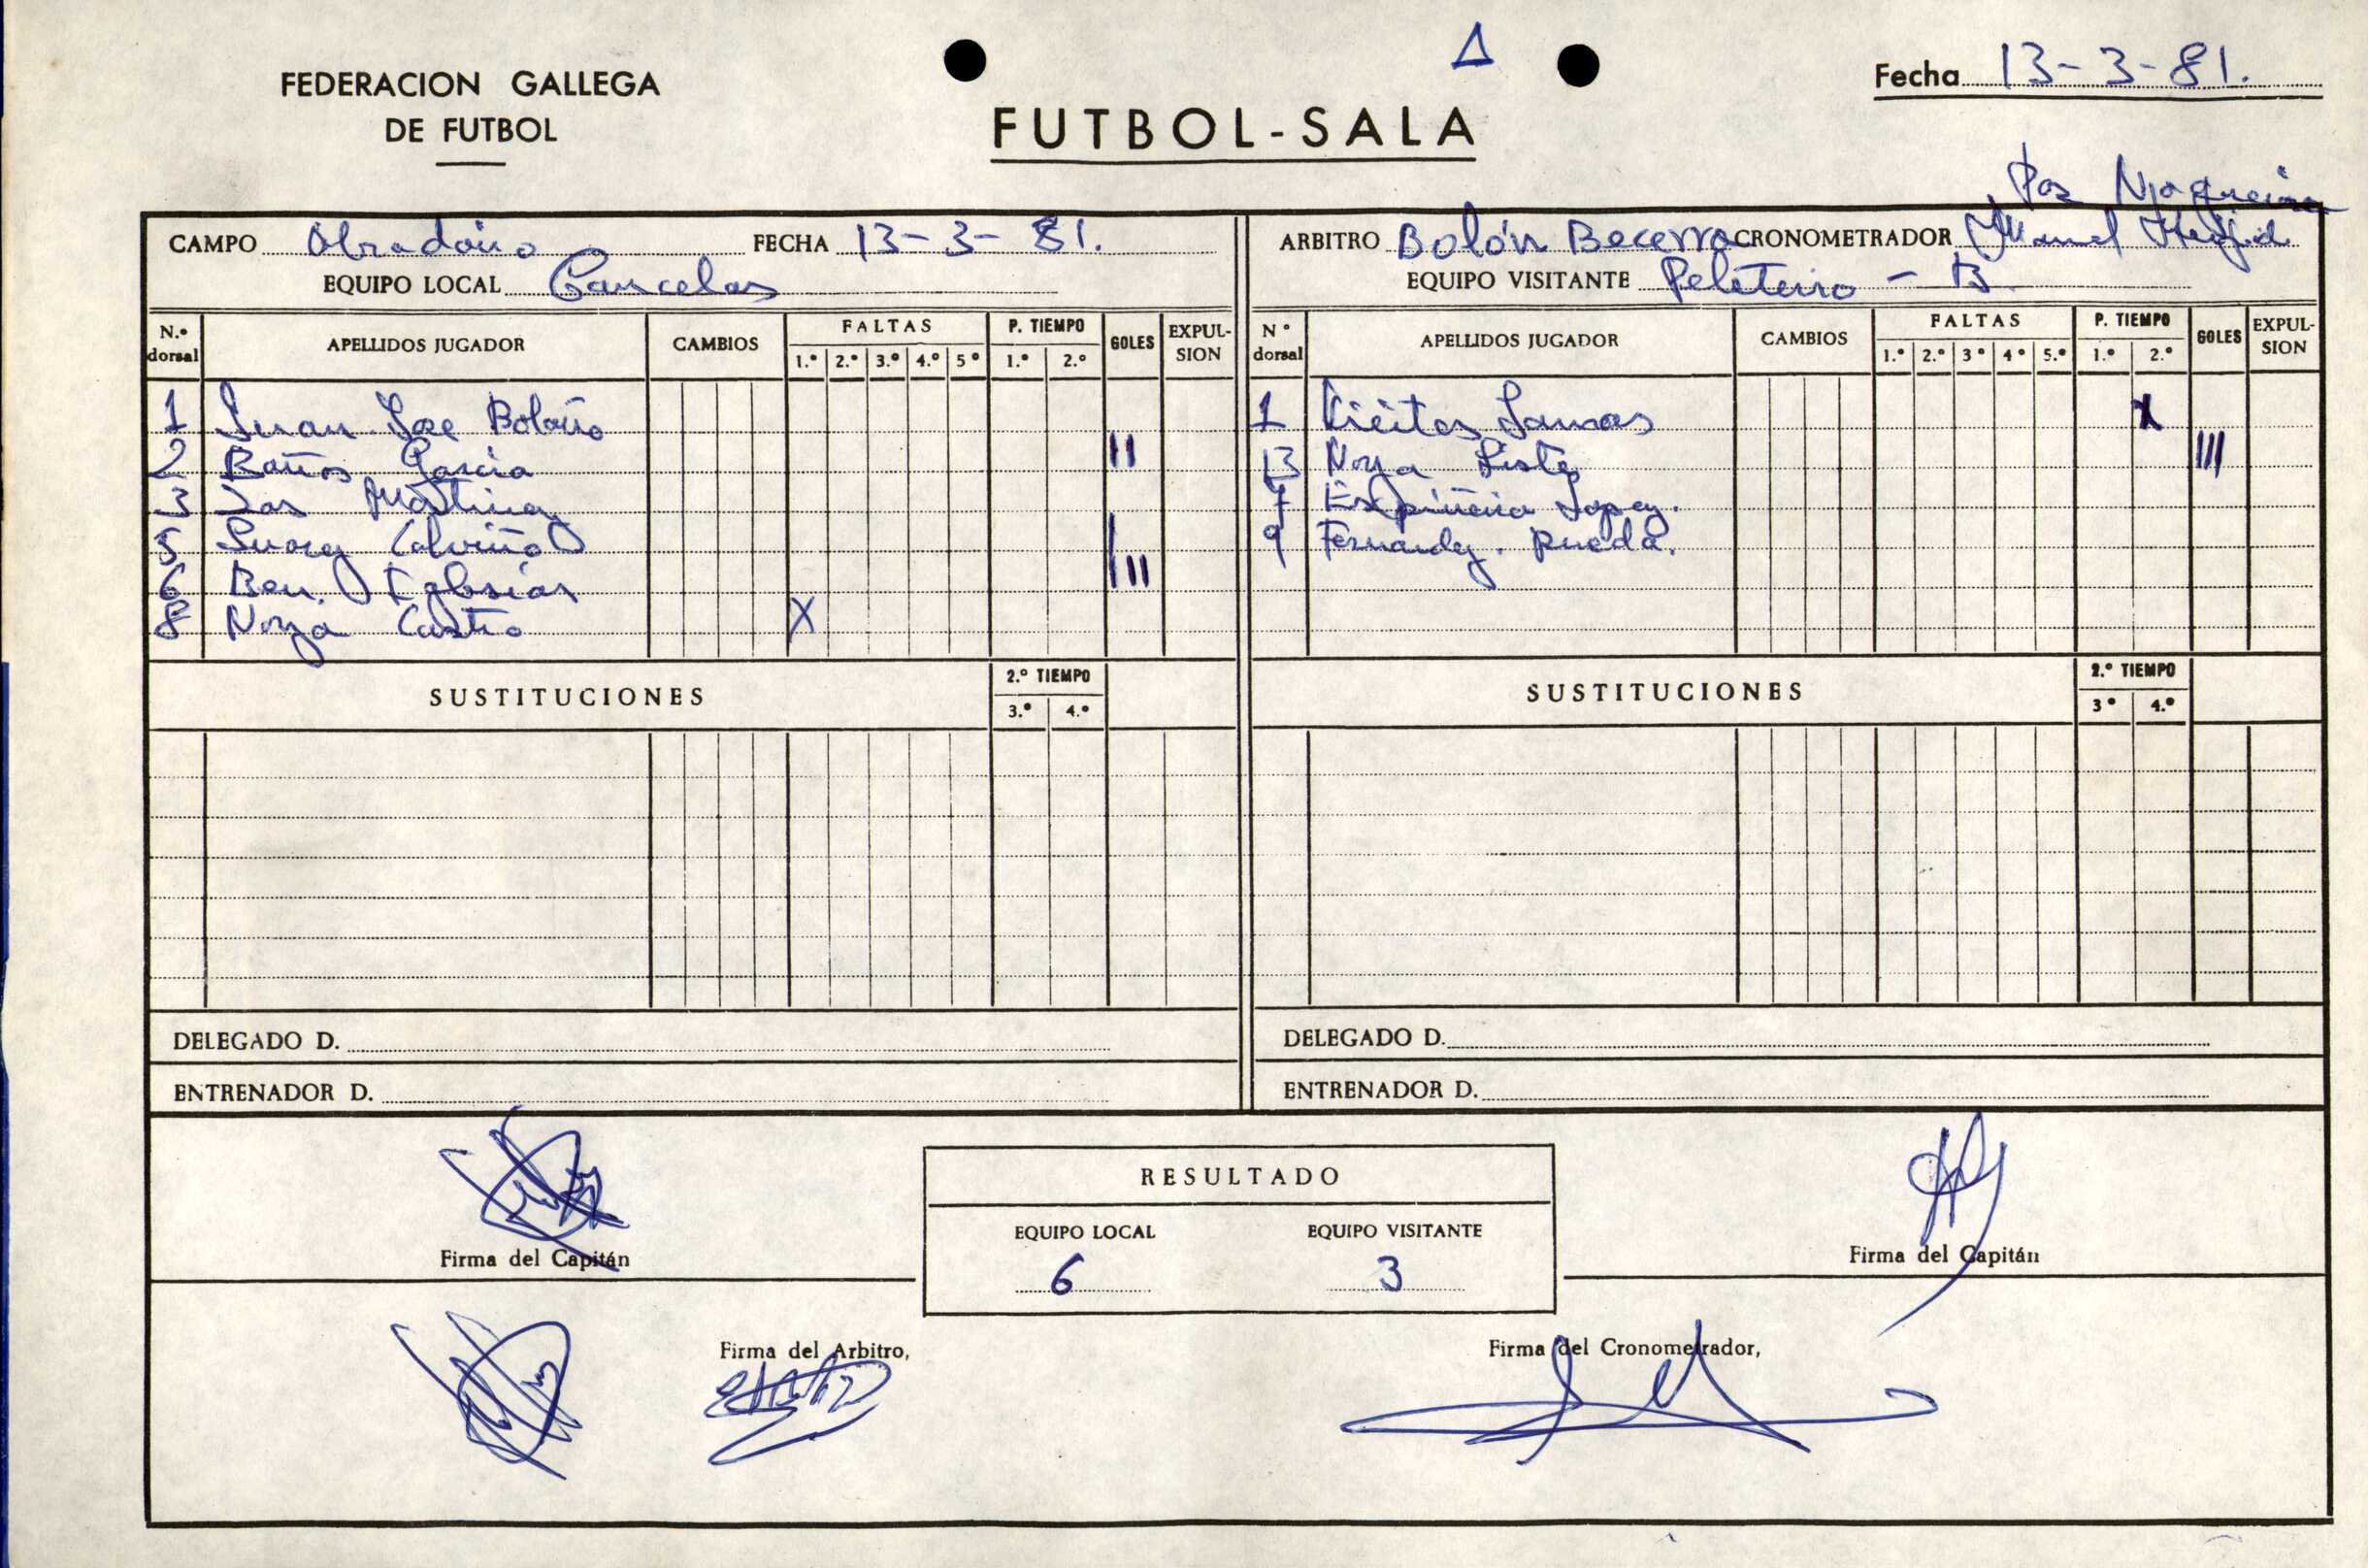 FEDERACION GALLEGA
DE FUTBOL
FUTBOL-SALA
Fecha 13-3-81.
CAMPO Obradoiro FECHA 13-3-81.
EQUIPO LOCAL Cancelas
ARBITRO Bolón Becerra CRONOMETRADOR Manuel
EQUIPO VISITANTE Peleteiro - B
N.º dorsal APELLIDOS JUGADOR CAMBIOS FALTAS 1.º 2.º 3.º 4.º 5º P. TIEMPO 1.º 2.º GOLES EXPUL-SION
1 Juan Jose Bolaño
2 Baños Garcia II
3 Martinez
5 Suarez Calviño I
6 Ben. Iglesias III
8 Noya Castro X
SUSTITUCIONES 2.º TIEMPO 3.º 4.º
DELEGADO D.
ENTRENADOR D.
Nº dorsal APELLIDOS JUGADOR CAMBIOS FALTAS 1.º 2.º 3º 4º 5.º P. TIEMPO 1.º 2.º GOLES EXPUL-SION
1 Vieites Lamas X
13 Noya Liste III
7 Espiñeira Lopez.
9 Fernandez. Rueda.
SUSTITUCIONES 2.º TIEMPO 3º 4.º
DELEGADO D.
ENTRENADOR D.
RESULTADO
EQUIPO LOCAL EQUIPO VISITANTE
6 3
Firma del Capitán
Firma del Capitán
Firma del Arbitro,
Firma del Cronometrador,